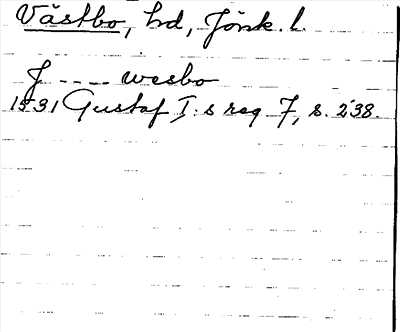 Västbo, hd, Jönk. l.
J ---- wesbo
1531 Gustaf I:s reg. 7, s. 238.